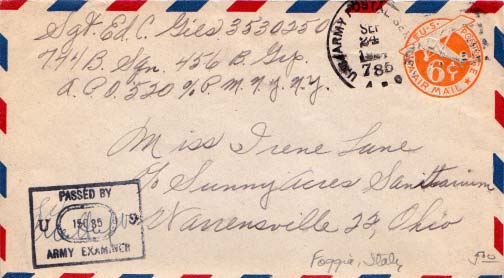 Sgt. Ed. C. Gies 3530250
744 B. Sqn. 456 B. Grp.
A.P.O. 520 % P.M. N.Y. N.Y.
U.S. ARMY POSTAL SE
SEP
24
785
U.S. POSTAGE
6¢
VIA AIR MAIL
Miss Irene Lane
% Sunny Acres Sanitarium
Warrensville 22, Ohio
PASSED BY
U S
ARMY EXAMINER
Foggia, Italy